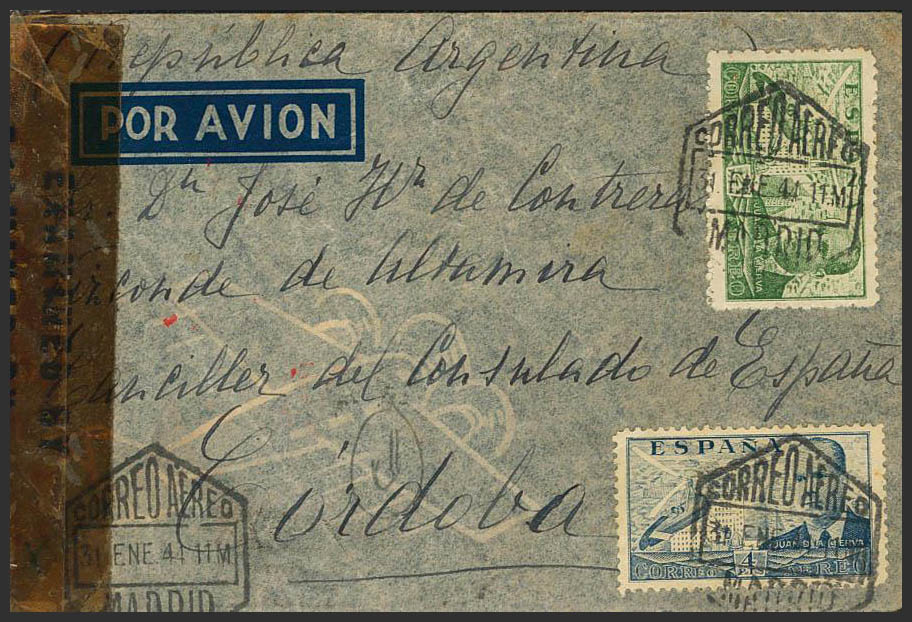 República Argentina
POR AVION
Dn José Mª de Contreras
Vizconde de Altamira
Canciller del Consulado de España
Córdoba
CORREO AEREO
31 ENE 41 11M
MADRID
ESPAÑA
JUAN DE LA CIERVA
CORREO AEREO
CORREO AEREO
31 ENE
MADRID
CORREO AEREO
31 ENE 41 11M
MADRID
EXAMINED BY